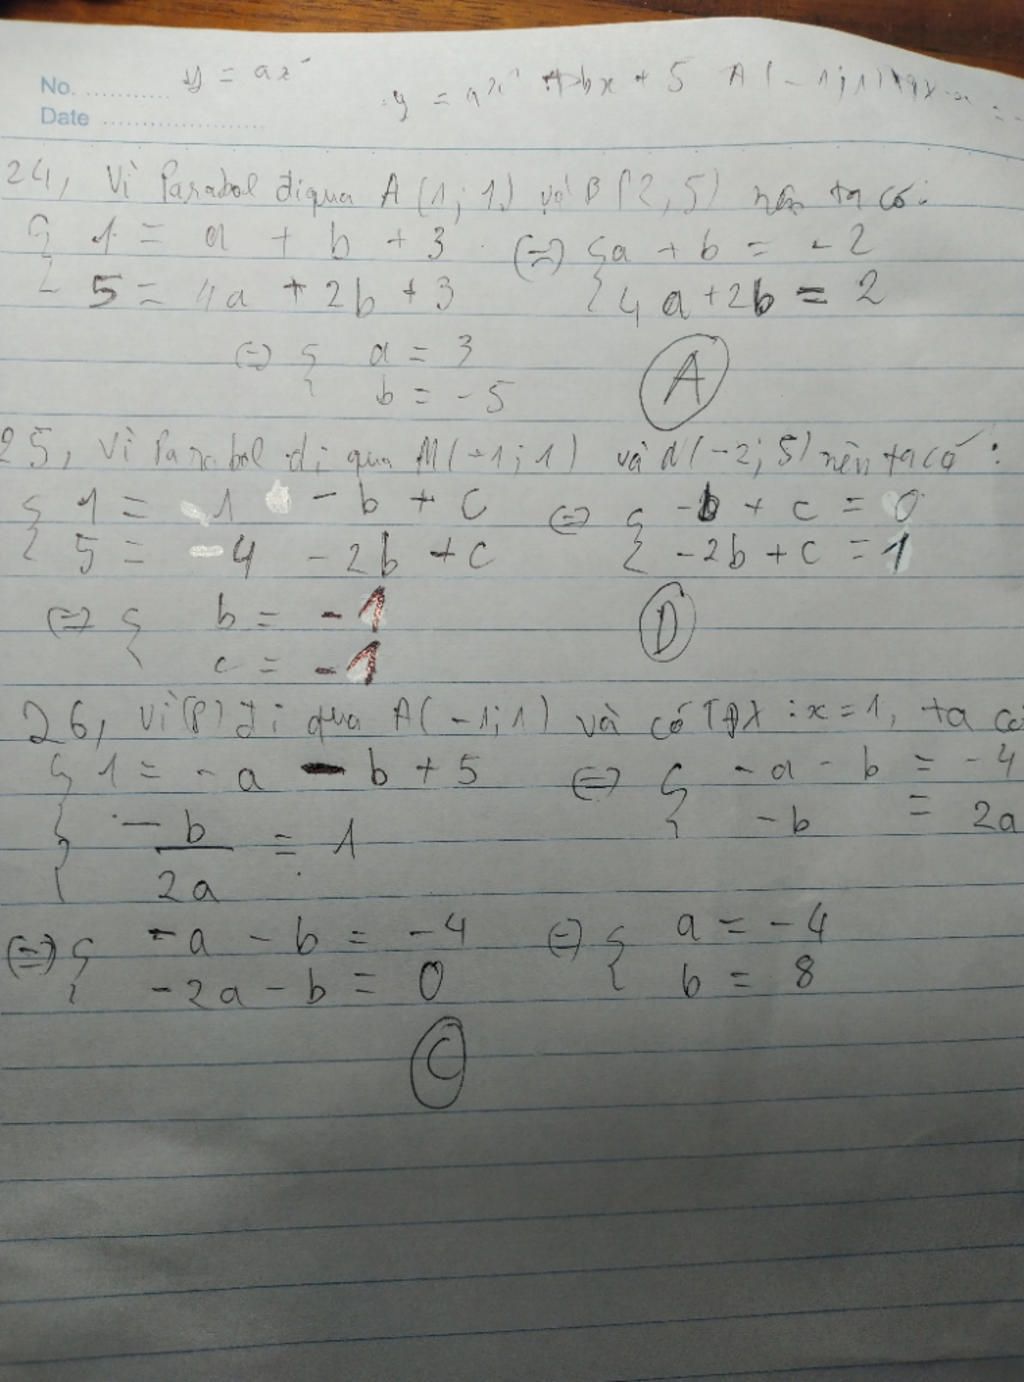 No. y = ax²
Date y = ax² + bx + 5 A(-1;1)
24, Vì Parabol đi qua A(1;1) và B(2,5) nên ta có:
{ 1 = a + b + 3 (=) { a + b = -2
5 = 4a + 2b + 3 4a + 2b = 2
(=) { a = 3
b = -5 A
25, Vì Parabol đi qua M(-1;1) và N(-2;5) nên ta có:
{ 1 = 1 - b + c (=) { -b + c = 0
5 = 4 - 2b + c -2b + c = 1
(=) { b = -1
c = -1 D
26, Vì (P) đi qua A(-1;1) và có TĐX: x = 1, ta có
{ 1 = -a - b + 5 (=) { -a - b = -4
-b = 2a
-b/2a = 1
(=) { -a - b = -4 (=) { a = -4
-2a - b = 0 b = 8
C